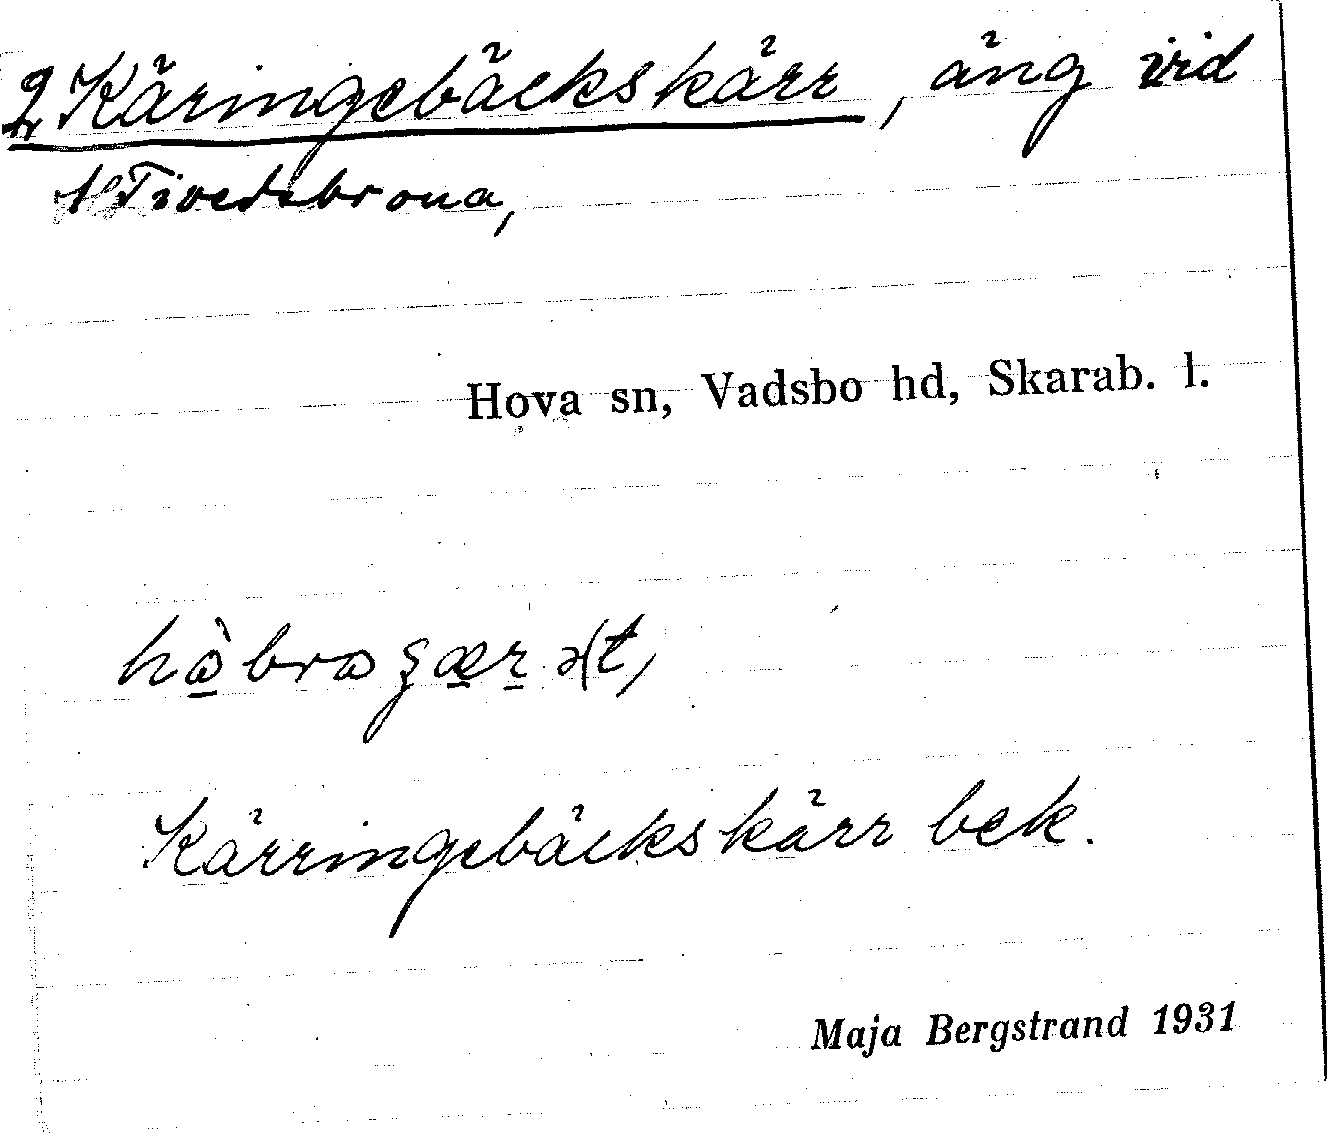 2 Käringebäckskärr, äng vid
1 Tivedsbrona,
Hova sn, Vadsbo hd, Skarab. l.
Kärringebäckskärr bek.
Maja Bergstrand 1931